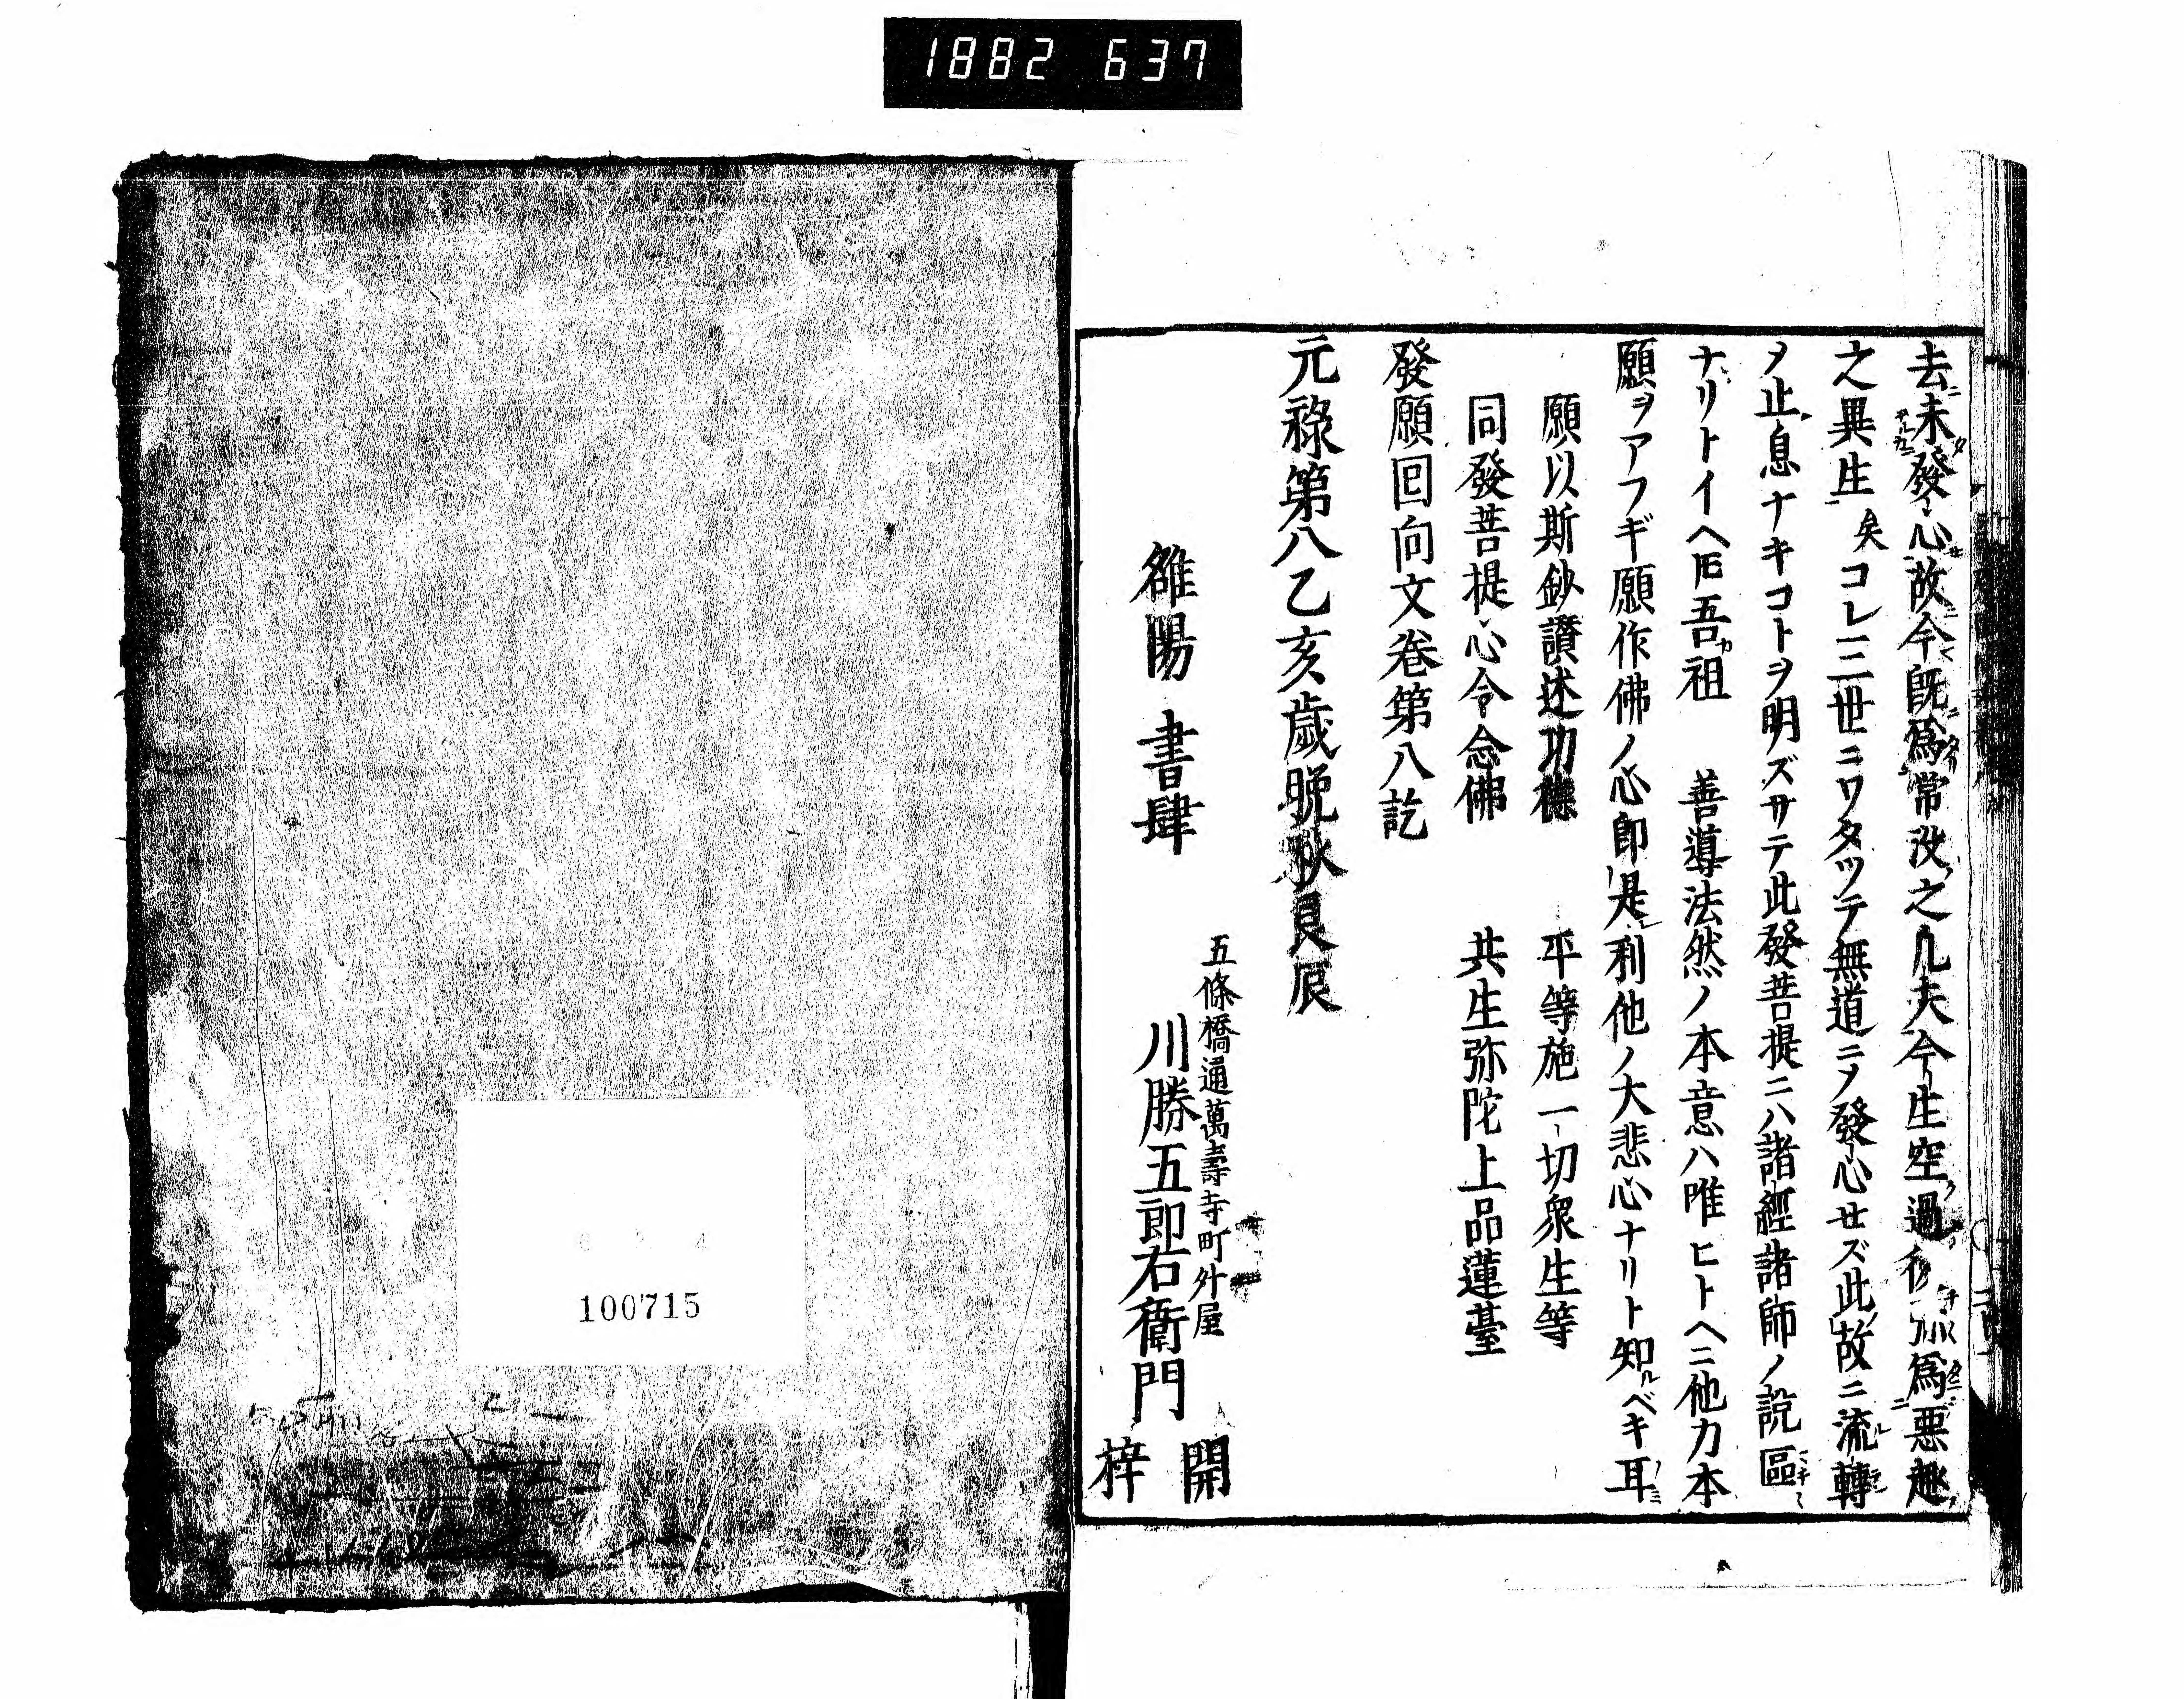 1882 637
去未發心故今既爲常没之凡夫今生空過 爲惡趣
之異生矣コレ三世ニワタツテ無道ニノ發心せズ此故ニ流轉
メ止息ナキコトヲ明ズサテ此發菩提ニハ諸經諸師ノ説區
ナリトイヘ𪜈吾祖 善導法然ノ本意ハ唯ヒトヘニ他力本
願ヲアフギ願作佛ノ心即是利他ノ大悲心ナリト知ルベキ耳
願以斯鈔讃述功德 平等施一切衆生等
同發菩提心令念佛 共生弥陀上品蓮臺
發願回向文卷第八訖
元祿第八乙亥歲晩秋良辰
五條橋通萬壽寺町舛屋
雒陽 書肆 川勝五郎右衞門 開梓
100715